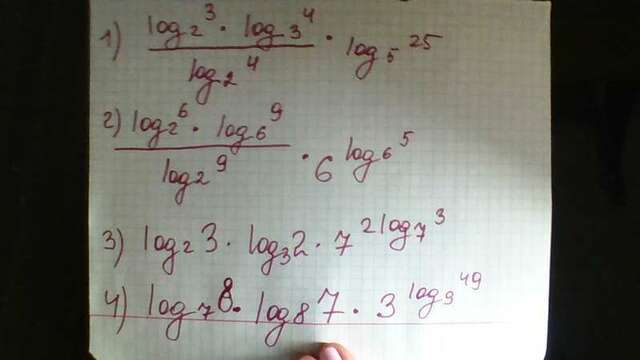 1) log₂3 · log₃4 / log₂4 · log₅25
2) log₂6 · log₆9 / log₂9 · 6^log₆5
3) log₂3 · log₃2 · 7^2log₇3
4) log₇8 · log₈7 · 3^log₉49